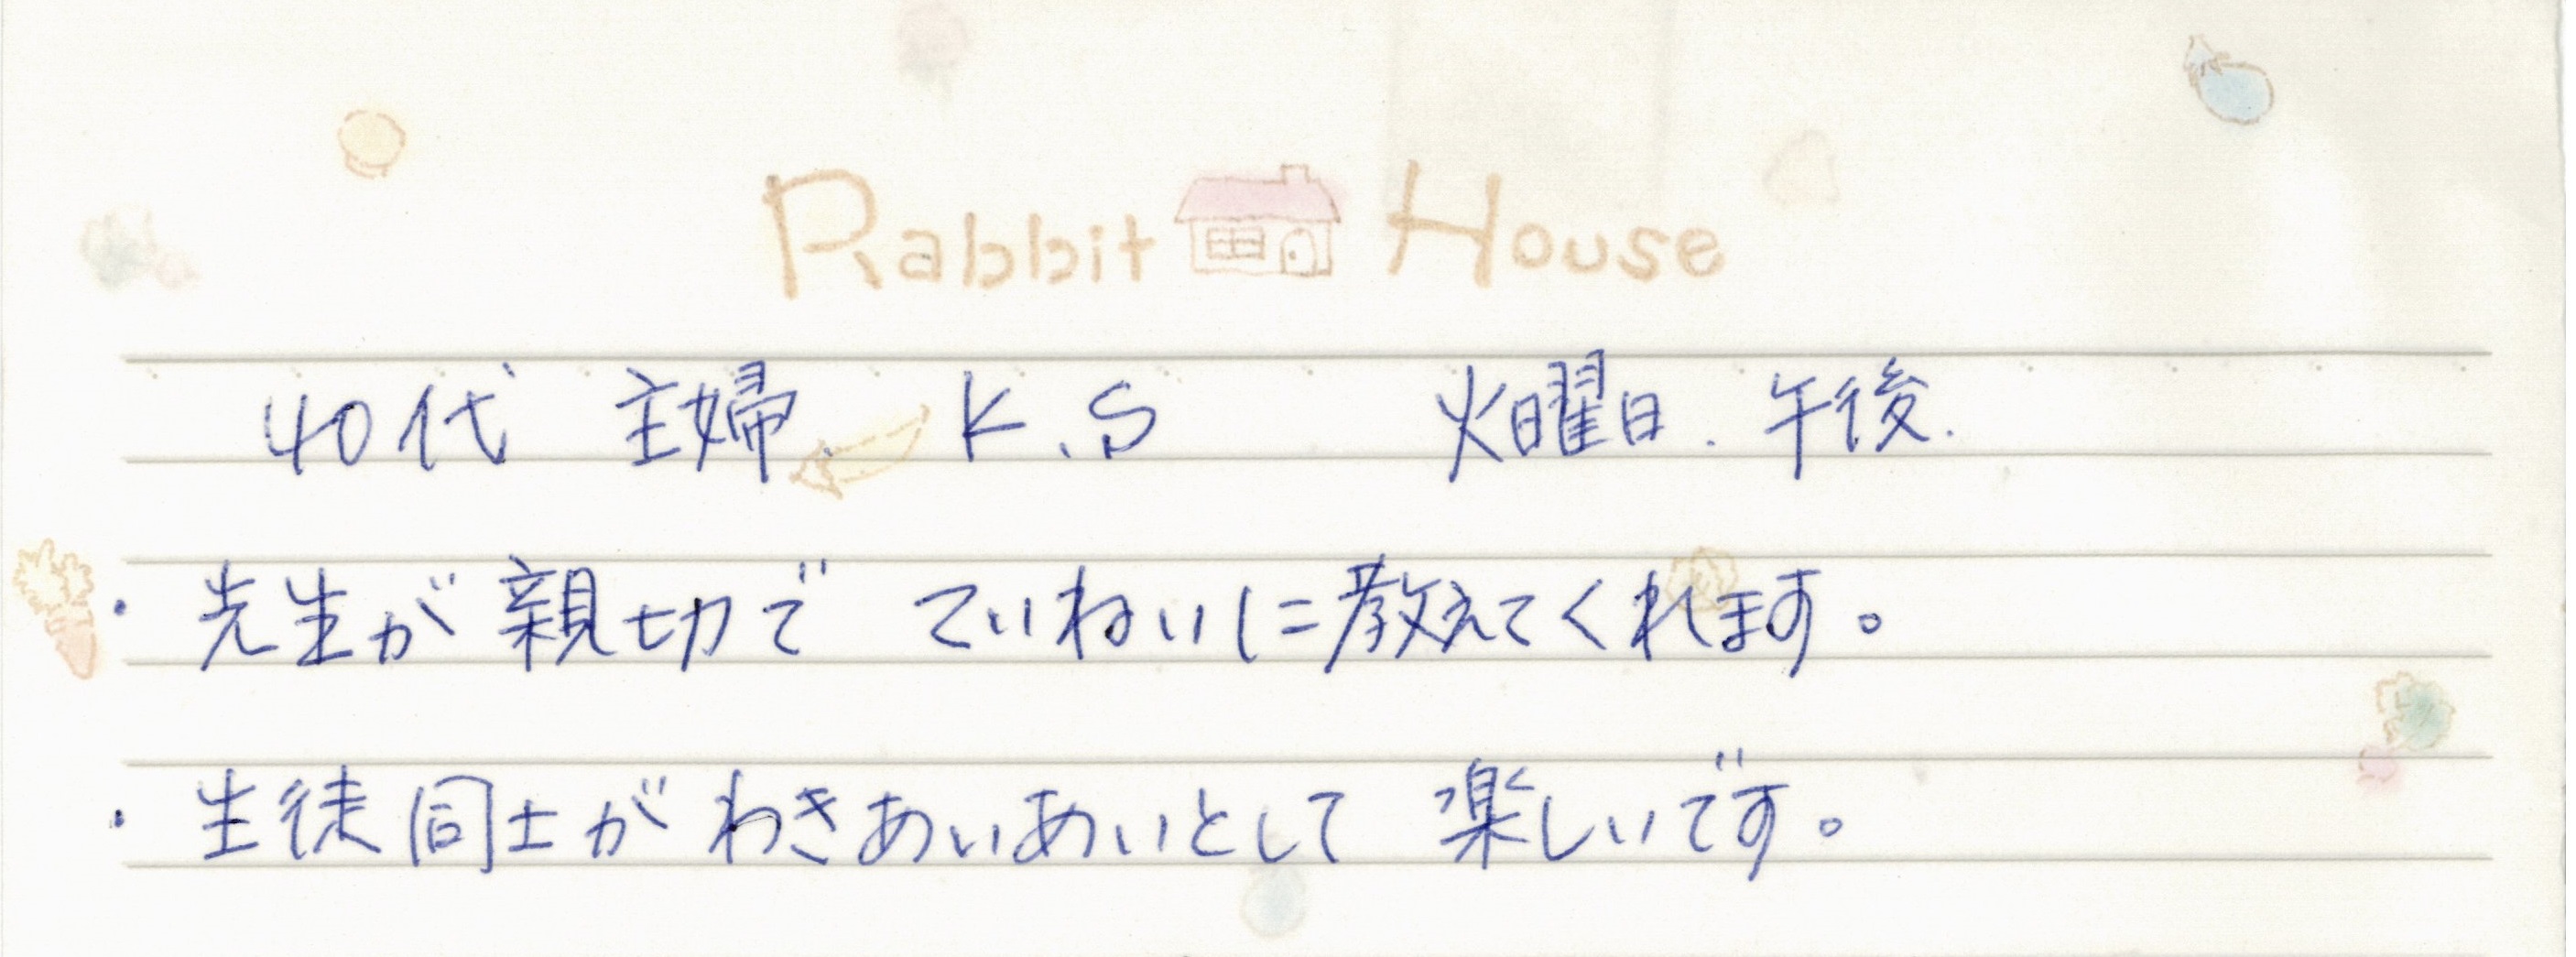 Rabbit House
40代 主婦. K.S 火曜日. 午後.
・先生が親切で ていねいに教えてくれます。
・生徒同士が わきあいあいとして 楽しいです。